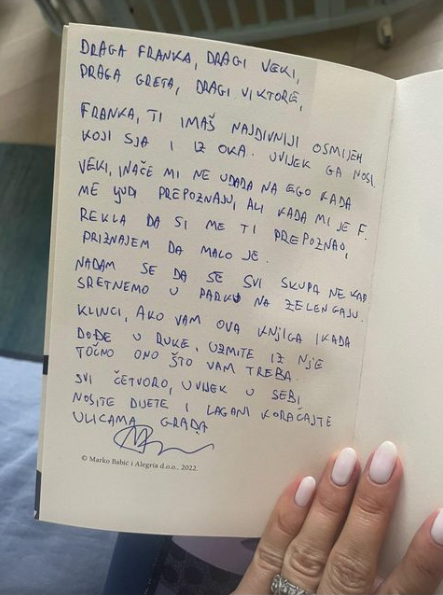 DRAGA FRANKA, DRAGI VEKI,
DRAGA GRETA, DRAGI VIKTORE,
FRANKA, TI IMAŠ NAJDIVNIJI OSMIJEH
KOJI SJA I IZ OKA. UVIJEK GA NOSI.
VEKI, INAČE MI NE UDARA NA EGO KADA
ME LJUDI PREPOZNAJU, ALI KADA MI JE F.
REKLA DA SI ME TI PREPOZNAO,
PRIZNAJEM DA MALO JE.
NADAM SE DA SE SVI SKUPA NEKAD
SRETNEMO U PARKU NA ZELENGAJU.
KLINCI, AKO VAM OVA KNJIGA IKADA
DOĐE U RUKE, UZMITE IZ NJE
TOČNO ONO ŠTO VAM TREBA.
SVI ČETVORO, UVIJEK U SEBI
NOSITE DIJETE I LAGANI KORAČAJTE
ULICAMA GRADA
© Marko Babić i Alegria d.o.o., 2022.